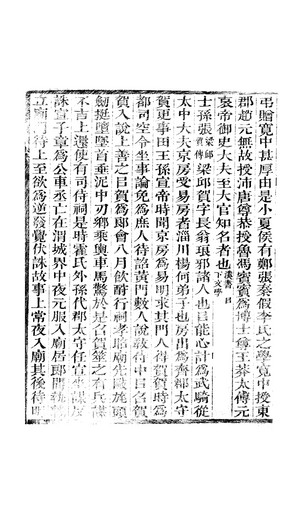 弔贈寬中甚厚由是小夏侯有鄭張秦假李氏之學寬中授東
郡趙元無故授沛唐尊恭授魯馮賓賓為博士尊王莽太傅元
哀帝御史大夫至大官知名者也漢書
士孫張梁邱賀傳梁邱賀字長翁琅邪諸人也目能心計為武騎從
太中大夫京房受易房者淄川楊何弟子也房出為齊郡太守
賀更事田王孫宣帝時聞京房為易明求其門人得賀賀時為
都司空令坐事論免為庶人待詔黃門數入說教侍中目召賀
賀入說上善之目賀為郎會八月飲酎行祠孝昭廟先敺旄頭
劍挺墮墜首垂泥中刃鄉乘輿車馬驚於是召賀筮之有兵謀
不吉上還使有司侍祠是時霍氏外孫代郡太守任宣坐謀反
誅宣子章為公車丞亡在渭城界中夜元服入廟居郎間執戟
立廟門待上至欲為逆發覺伏誅故事上常夜入廟其後待明